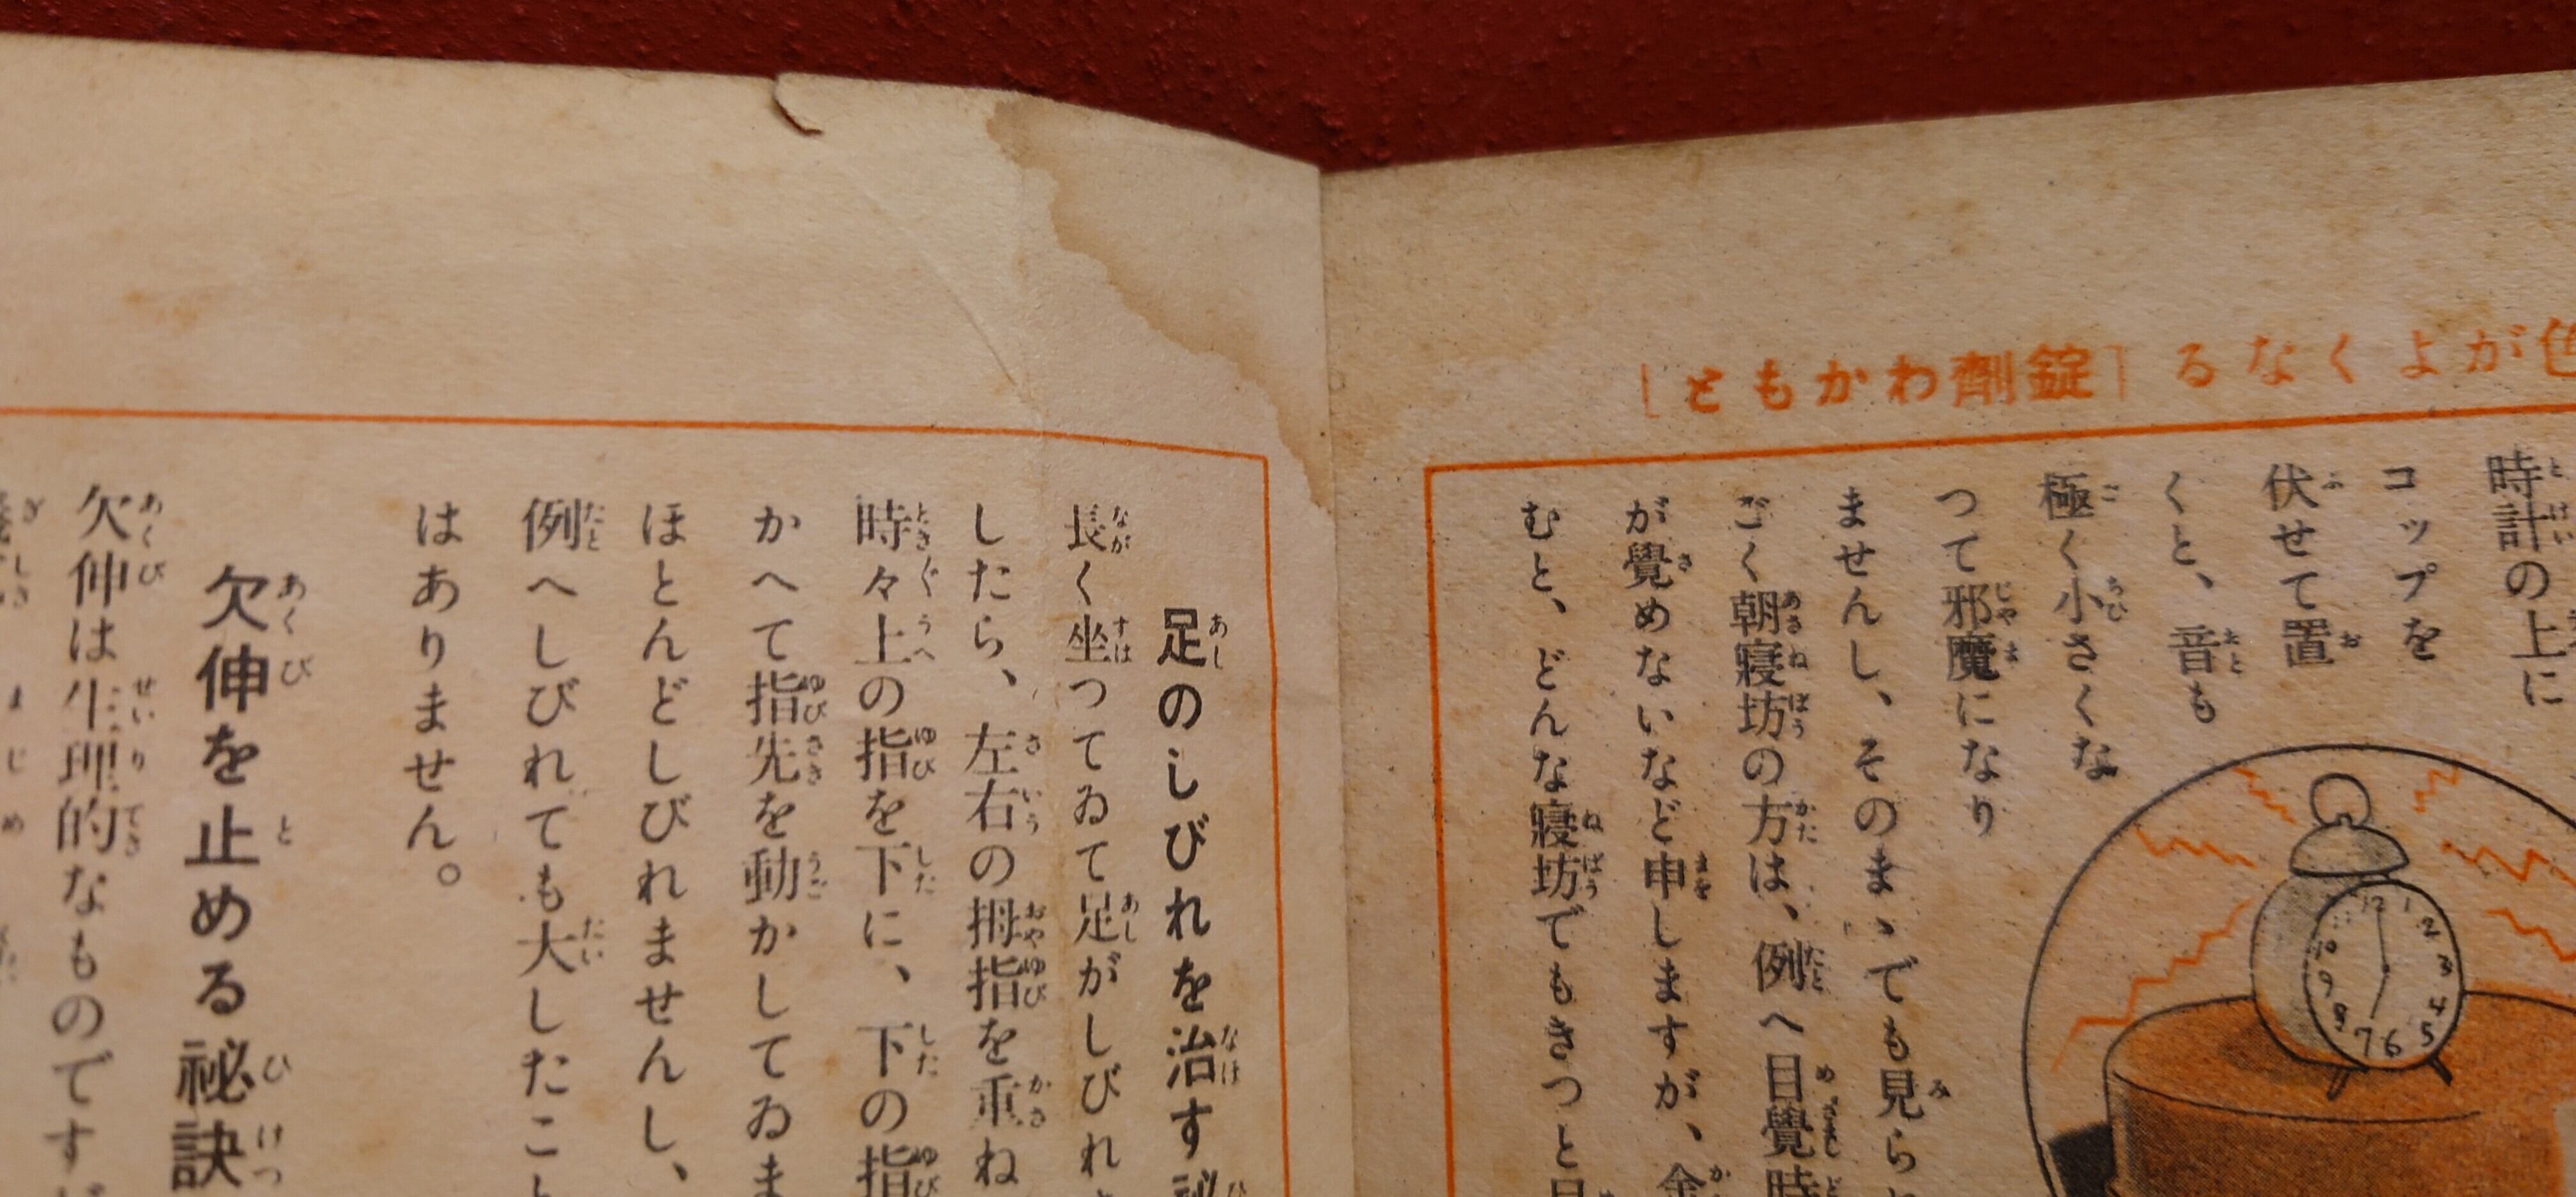 色がよくなる[錠劑わかもと]
時計の上に
コップを
伏せて置
くと、音も
極く小さくな
つて邪魔になり
ませんし、そのまゝでも見ら
ごく朝寢坊の方は、例へ目覺時
が覺めないなど申しますが、金
むと、どんな寢坊でもきつと目
12 1 2 3 4 5 6 7 8 9 10
足のしびれを治す祕
長く坐つてゐて足がしびれ
したら、左右の拇指を重ね
時々上の指を下に、下の指
かへて指先を動かしてゐま
ほとんどしびれませんし、
例へしびれても大したこと
はありません。
欠伸を止める祕訣
欠伸は生理的なものですが